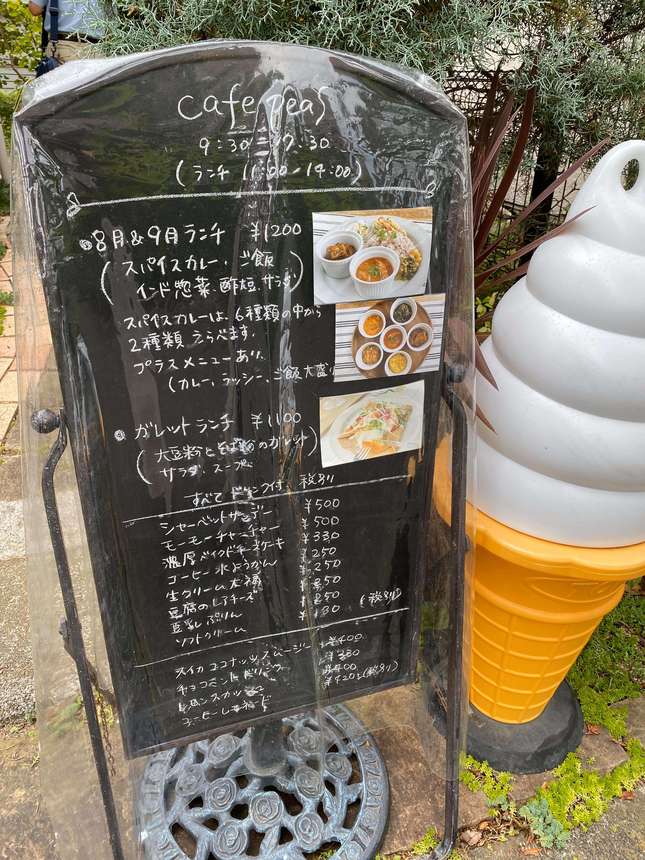 cafe peas
9:30-17:30
(ランチ 11:00-14:00)
8月&9月 ランチ ¥1200
(スパイスカレー、ご飯
インド惣菜、酢豆、サラダ)
スパイスカレーは、6種類の中から
2種類 えらべます。
プラスメニューあり、
(カレー、ラッシー、ご飯大盛り
ガレットランチ ¥1100
(大豆粉とそば粉のガレット)
サラダ、スープ
すべて ドリンク付 税別
シャーベットサンデー ¥500
モーモーチャーチャー ¥500
濃厚ベイクドチーズケーキ ¥330
コーヒー水ようかん ¥250
生クリーム大福 ¥250
豆腐のレアチーズ
豆乳ぷりん
ソフトクリーム
(税別)
スイカ ココナッツスムージー ¥400
チョコミントドリンク
¥420 (税別)